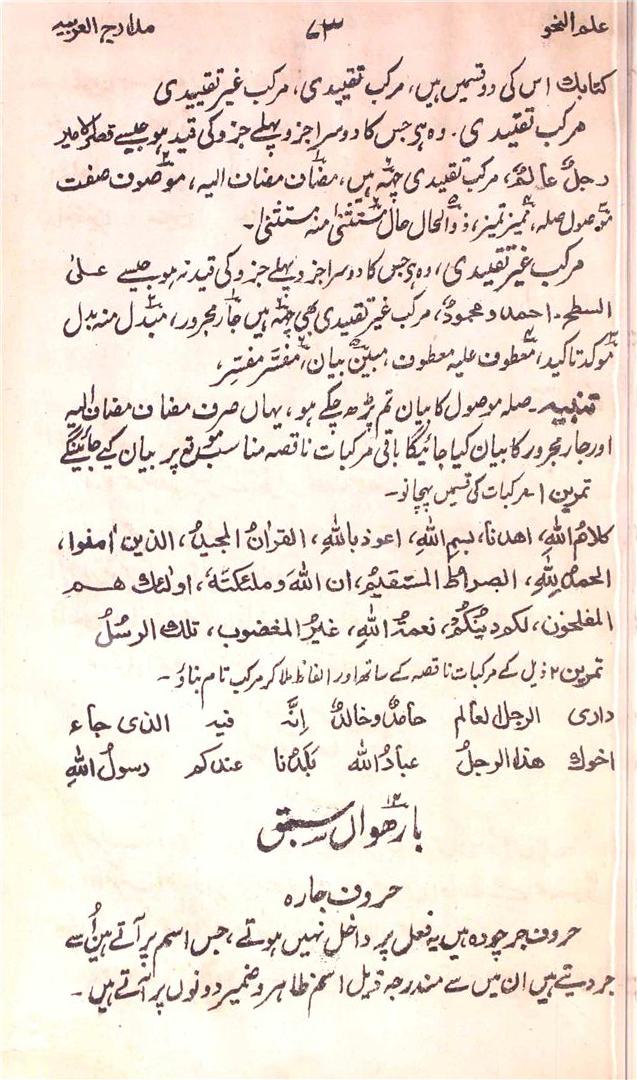 علم النحو ۷۳ مدارج العربیہ
کتابك اس کی دو قسمیں ہیں، مرکب تقییدی، مرکب غیر تقییدی
مرکب تقییدی۔ وہ ہی جس کا دوسرا جزو پہلے جزو کی قید ہو جیسے
رجلٌ عالمٌ، مرکب تقییدی چھ ہیں، مضاف مضاف الیہ، موصوف صفت
موصول صلہ، ممیز تمیز، ذوالحال حال مستثنیٰ منہ مستثنیٰ۔
مرکب غیر تقییدی، وہ ہی جس کا دوسرا جزو پہلے جزو کی قید نہ ہو جیسے علیٰ
السطح۔ احمد ومحمودٌ، مرکب غیر تقییدی بھی چھ ہیں جار مجرور، مبدل منہ بدل
موکد تاکید، معطوف علیہ معطوف، مبین بیان، مفسَّر مفسِّر،
تنبیہ۔ صلہ موصول کا بیان تم پڑھ چکے ہو، یہاں صرف مضاف مضاف الیہ
اور جار مجرور کا بیان کیا جائیگا باقی مرکبات ناقصہ مناسب موقع پر بیان کیے جائینگے
تمرین ۱۔ مرکبات کی قسمیں پہچانو۔
کلامُ اللهِ، اهدنا، بسمِ اللهِ، اعوذ باللهِ، القرانُ المجیدُ، الذین اٰمنوا،
الحمدُ للهِ، الصراطُ المستقیمُ، ان اللهَ وملئكتهٗ، اولئك هم
المفلحون، لكم دینُكُمْ، نعمةُ اللهِ، غیرُ المغضوب، تلك الرسُلُ
تمرین ۲ ذیل کے مرکبات ناقصہ کے ساتھ اور الفاظ ملا کر مرکب تام بناؤ۔
داری الرجل العالم حامدٌ وخالدٌ اِنَّهٗ فیه الذی جاء
اخوك هذا الرجلُ عبادُ الله بَلَدُنا عندكم رسولُ اللهِ
بارھواں ۱۲ سبق
حروف جارہ
حروف جر چودہ ہیں یہ فعل پر داخل نہیں ہوتے، جس اسم پر آتے ہیں اُسے
جر دیتے ہیں ان میں سے مندرجہ ذیل اسم ظاہر و ضمیر دونوں پر آتے ہیں۔